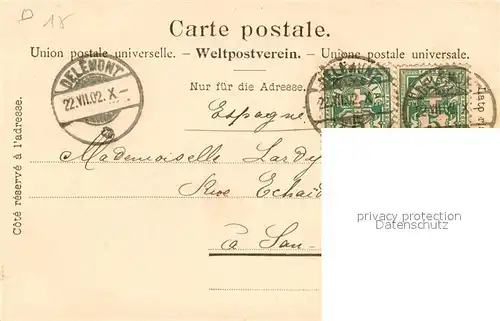 D 18
Carte postale.
Union postale universelle. – Weltpostverein. – Unione postale universale.
DELÉMONT
22.VII.02.X–
Nur für die Adresse.
Espagne
Côté réservé à l'adresse.
Mademoiselle Lardy
Rue
à San-
privacy protection
Datenschutz